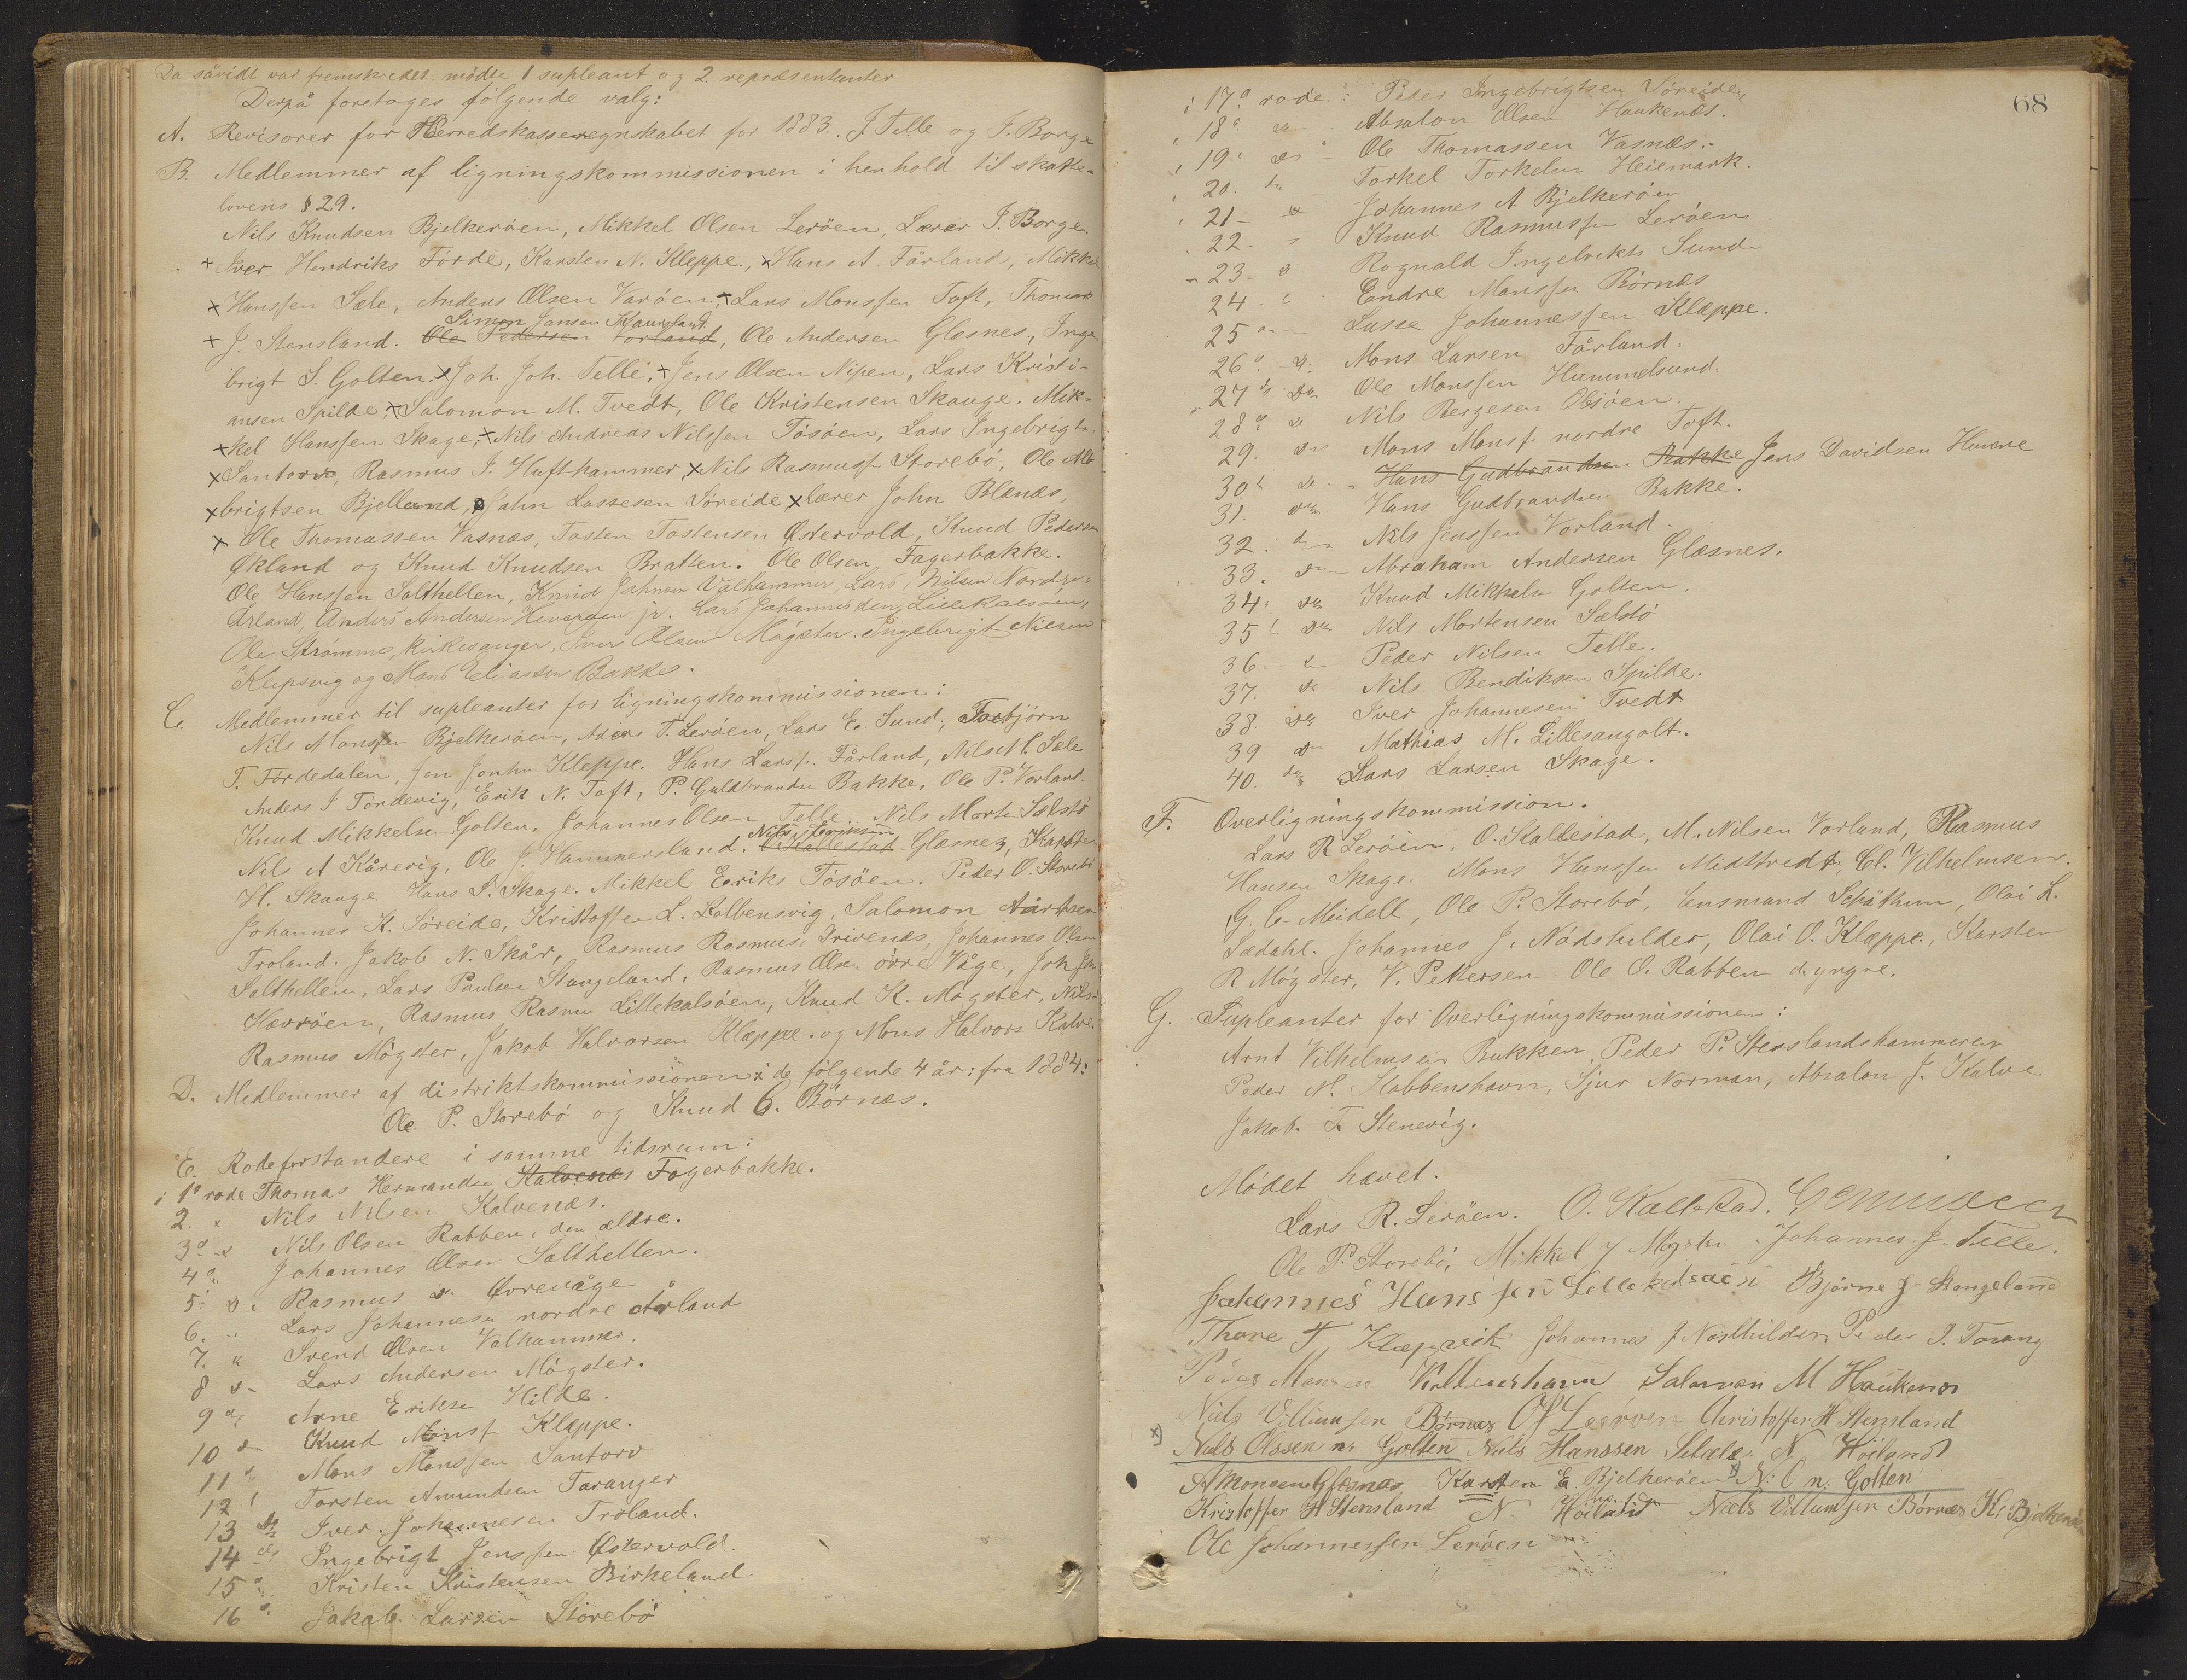 Da såvidt var fremskredet mödte 1 supleant og 2 repræsentanter
Derpå foretoges følgende valg:
A. Revisorer for Herredskasseregnskabet for 1883. J. Telle og J. Borge
B. Medlemmer af ligningskommissionen i henhold til skatte-
lovens § 29.
Nils Knudsen Bjelkeröen, Mikkel Olsen Leröen, Lærer J. Borge.
+ Iver Hendriks Förde, Karsten N. Kleppe, x Hans A. Fårland, Mikkel
x Hanssen Sele, Anders Olsen Varöen, x Lars Monssen Toft, Thomas
Simon Jansen Kausland
+ J. Stensland. Ole Pedersen Vorland, Ole Andersen Glesnes, Inge
brigt S. Golten. x Joh. Joh. Telle, x Jens Olsen Nipen, Lars Kristi-
ansen Spilde, x Salomon M. Tvedt, Ole Kristensen Skauge. Mik-
x kel Hanssen Skage, x Nils Andreas Nilssen Tösöen, Lars Ingebrigts
x Santorv, Rasmus J. Hufthammer, x Nils Rasmuss. Storebö, Ole Alb
x brigtsen Bjelland, Jahn Lassesen Söreide x lærer John Blænæs,
x Ole Thomassen Vasnæs, Tosten Tostensen Østervold, Knud Pedersen
Økland og Knud Knudsen Bratten. Ole Olsen Fagerbakke.
Ole Hanssen Salthellen, Knud Johnsen Valhammer, Lars Nilsen Nordre-
Årland, Anders Andersen Hevröen jr. Lars Johannes den Lillekalsöen,
Ole Strömme, Kirkesanger, Iver Olsen Mögster. Ingebrigt Nilsen
Klepsvig og Mons Eliassen Bakke.
C. Medlemmer til supleanter for ligningskommissionen:
Nils Monssen Bjelkeröen, Anders T. Leröen, Lars E. Sund, Torbjörn
T. Fördedalen, Jon Jonsen Kleppe. Hans Larss. Fårland, Nils M. Sele
Anders J Tördevig, Erik N. Toft, P. Guldbrandsen Bakke, Ole P. Vorland.
Knud Mikkelsen Golten. Johannes Olsen Telle. Nils Morten Sælstö
Nils Eriksen
Nils A Kårevig, Ole J Hammersland. O. Kallestad Glæsnes, Karsten
H. Skauge Hans S. Skage. Mikkel Eriks Tösöen. Peder O. Storebö
Johannes K. Söreide, Kristoffer L. Kolbensvig, Salomon
Troland. Jakob N. Skår, Rasmus Rasmus. Drivenæs, Johannes Olsen
Salthellen, Lars Paulsen Stangeland. Rasmus Olsen övre Våge, Joh Joh
Hevröen, Rasmus Rasmus Lillekalsöen, Knud K. Mögster, Nils
Rasmus Mögster, Jakob Halvorsen Kleppe. og Mons Halvors Kalve.
D. Medlemmer af distriktskommissionen i de følgende 4 år: fra 1884:
Ole P. Storebö og Knud C. Börnæs.
E. Rodeforstandere i samme tidsrum:
i 1ª rode Thomas Hermansen Kalvenæs Fagerbakke.
2. " Nils Nilsen Kalvenæs.
3. " Nils Olsen Rabben, den ældre.
4. Johannes Olsen Salthellen.
5. Rasmus Övrevåge
6. Lars Johannesen nordre Årland
7. " Svend Olsen Valhammer.
8 Lars Andersen Mögster.
9 Arne Eriksen Hilde.
10 Knud Monss. Kleppe.
11 Mons Monssen Santorv
12 Torsten Amundsen Taranger
13 Iver Johannesen Troland.
14 Ingebrigt Jenssen Østervold.
15 Kristen Kristensen Birkeland
16 Jakob Larsen Storebö
68
i 17ª rode: Peder Ingebrigtsen Söreide,
18. Absalon Olsen Haukenæs.
19. Ole Thomassen Vasnæs.
20. Torkel Torkelsen Heiemark.
21 Johannes A Bjelkeröen
22. Knud Rasmussen Leröen
23 Rognald Ingebrikts Sund
24. Endre Monssen Börnæs
25 Lasse Johannessen Klæppe.
26 Mons Larsen Fårland.
27 Ole Monssen Hummelsund.
28 Nils Børgesen Obsöen.
29. Mons Monss. nordre Toft.
30 Hans Gudbrandsen Bakke Jens Davidsen
31. Hans Gudbrandsen Bakke.
32. Nils Jenssen Vorland.
33. Abraham Andersen Glæsnes.
34. Knud Mikkelsen Golten.
35 Nils Mortensen Sælstö
36. Peder Nilsen Telle.
37. Nils Bendiksen Spilde.
38. Iver Johannesen Tvedt
39 Mathias M. Lillesangolt.
40. Lars Larsen Skage.
F. Overligningskommission.
Lars R Leröen. O. Kallestad, M. Nilsen Vorland, Rasmus
Hansen Skage. Mons Hanssen Midttvedt, Cl. Vilhelmsen.
G. C. Meidell, Ole P. Storebö, Lensmand Schåthun, Olai L.
Sædahl. Johannes J. Nödshilder, Olai O. Klæppe, Karsten
R Mögster, V. Pettersen. Ole O. Rabben d. yngre.
G. Supleanter for Overligningskommissionen:
Arnt Vilhelmsen Bukken, Peder P. Stenslandshammeren
Peder M. Klabbenshavn, Sjur Norman, Absalon J. Kalve
Jakob T. Stenevig.
Mödet hævet.
Lars R. Leröen. O. Kallestad.
Ole P. Storebö, Mikkel J Mögster. Johannes J. Telle.
Johannes Hanssen Lillekalsöen Björne J. Stangeland
Thore T Klæpsvik Johannes J Nösthilder Peder J. Tarang
Peder Monsen Salamon M Haukenæs
Niels Villumsen Börnæs O J Leröen Christoffer H Stensland
x) Nils Olssen n. Golten Nils Hanssen Selele. N. Höiland
A Monsen Glæsnæs Karsten E Bjelkeröen x) N. O n. Golten
Kristoffer H Stensland N Höiland Niels Villumsen Börnæs K. Bjelkeröen
Ole Johannessen Leröen